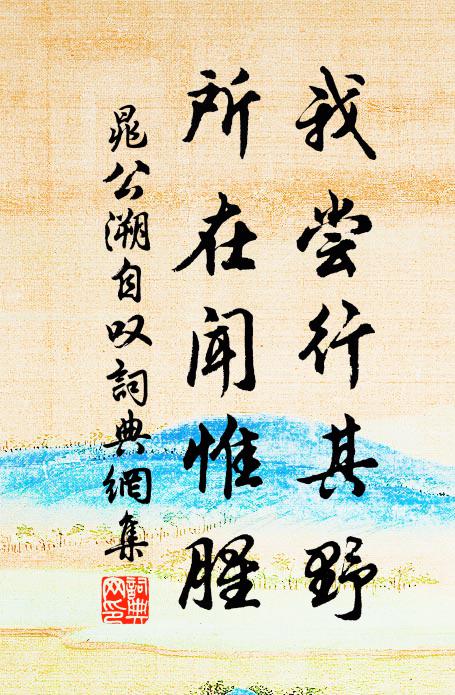 我尝行其野
所在闻惟腥
晁公溯自叹詞典網集
詞典网印